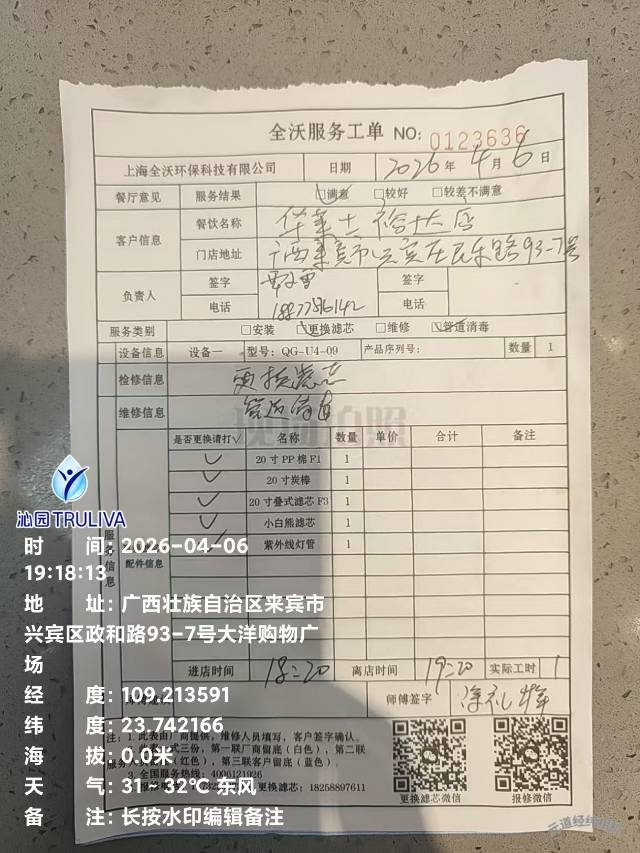 全沃服务工单 NO: 0123636
上海全沃环保科技有限公司 日期 2026年4月6日
餐厅意见 服务结果 ☑满意 □较好 □较差不满意
客户信息 餐饮名称 华莱士裕达店
门店地址 广西来宾市兴宾区 路93-7号
负责人 签字 签字
电话 18877 6142 电话
服务类别 □安装 ☑更换滤芯 □维修 ☑管道消毒
设备信息 设备一 型号: QG-U4-09 产品序列号: 数量 1
检修信息 更换滤芯
维修信息 管道消毒
现场拍照
是否更换请打√ 名称 数量 单价 合计 备注
√ 20寸PP棉F1 1
√ 20寸炭棒 1
√ 20寸叠式滤芯F3 1
√ 小白熊滤芯 1
√ 紫外线灯管 1
服务信息
配件信息
进店时间 18:20 离店时间 19:20 实际工时 1
师傅签字
注: 1.此表由厂商提供, 维修人员填写, 客户签字确认。
式三份, 第一联厂商留底(白色), 第二联
(红色), 第三联客户留底(蓝色)。
3.全国服务热线: 4006121926
更换滤芯: 18258897611
更换滤芯微信 报修微信
沁园TRULIVA
时 间: 2026-04-06
19:18:13
地 址: 广西壮族自治区来宾市
兴宾区政和路93-7号大洋购物广
场
经 度: 109.213591
纬 度: 23.742166
海 拔: 0.0米
天 气: 31~32℃ 东风
备 注: 长按水印编辑备注
元道经纬相机